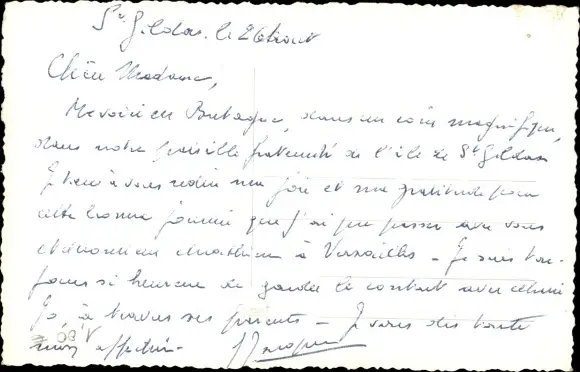 St Gildas. le 26 août
Chère Madame,
Me voici en Bretagne, dans un coin magnifique,
dans notre paisible fraternité de l'île de St Gildas
Je tiens à vous redire ma joie et ma gratitude pour
cette bonne journée que j'ai pu passer avec vous
et Monsieur à Versailles - Je suis tou-
jours si heureuse de garder le contact avec
Jo, à travers ses parents - Je vous dis toute
mon affection -